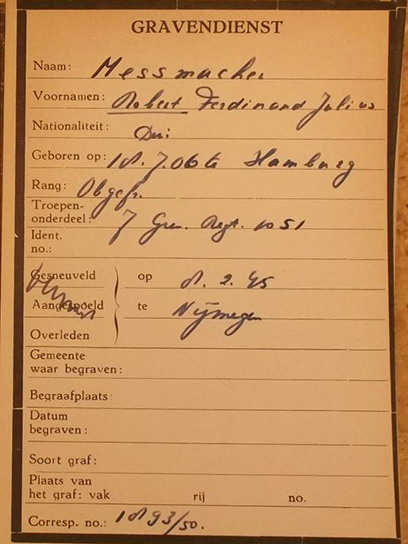 GRAVENDIENST
Naam: Messmacher
Voornamen: Robert Ferdinand Julius
Nationaliteit: Dui
Geboren op: 18.7.06 te Hamburg
Rang: Obgefr.
Troepen-
onderdeel: 7 Gren. Regt. 1051
Ident.
no.:
Gesneuveld op 8.2.45
Aangespoeld te Nijmegen
Overleden
Gemeente
waar begraven:
Begraafplaats
Datum
begraven:
Soort graf:
Plaats van
het graf: vak rij no.
Corresp. no.: 1893/50.